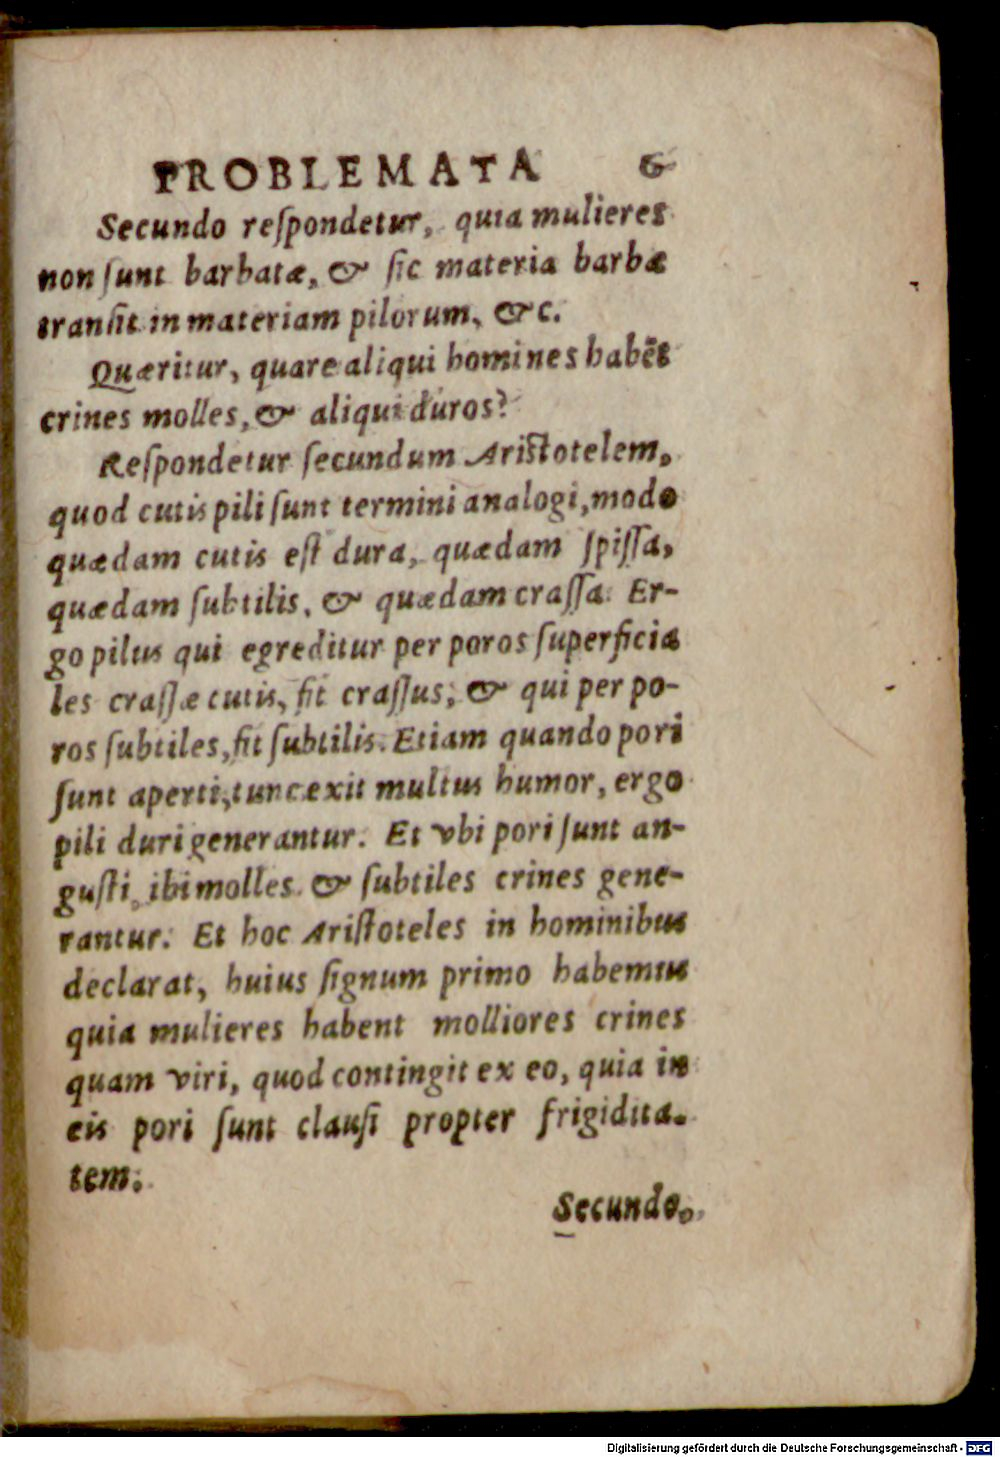 PROBLEMATA 6
Secundo reſpondetur, quia mulieres
non ſunt barbatæ, & ſic materia barbæ
tranſit in materiam pilorum, &c.
Quæritur, quare aliqui homines habẽt
crines molles, & aliqui duros?
Reſpondetur ſecundum Ariſtotelem,
quod cutis pili ſunt termini analogi, modo
quædam cutis eſt dura, quædam ſpiſſa,
quædam ſubtilis, & quædam craſſa. Er-
go pilus qui egreditur per poros ſuperficia
les craſſæ cutis, fit craſſus, & qui per po-
ros ſubtiles, fit ſubtilis. Etiam quando pori
ſunt aperti, tunc exit multus humor, ergo
pili duri generantur. Et vbi pori ſunt an-
guſti, ibi molles & ſubtiles crines gene-
rantur. Et hoc Ariſtoteles in hominibus
declarat, huius ſignum primo habemus
quia mulieres habent molliores crines
quam viri, quod contingit ex eo, quia in
eis pori ſunt clauſi propter frigidita-
tem.
Secundo,
Digitalisierung gefördert durch die Deutsche Forschungsgemeinschaft - DFG